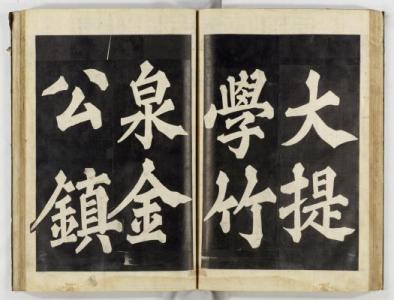 大提
學竹
泉金
公鎮